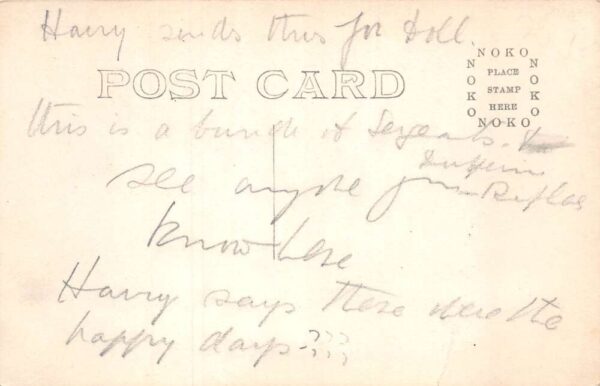 Harry sends this for Doll.
POST CARD
NOKO
NOKO
NOKO
NOKO
PLACE
STAMP
HERE
this is a bunch of Sergeants.
Dufferin
Rifles
see anyone you
know here
Harry says these were the
happy days ???
???